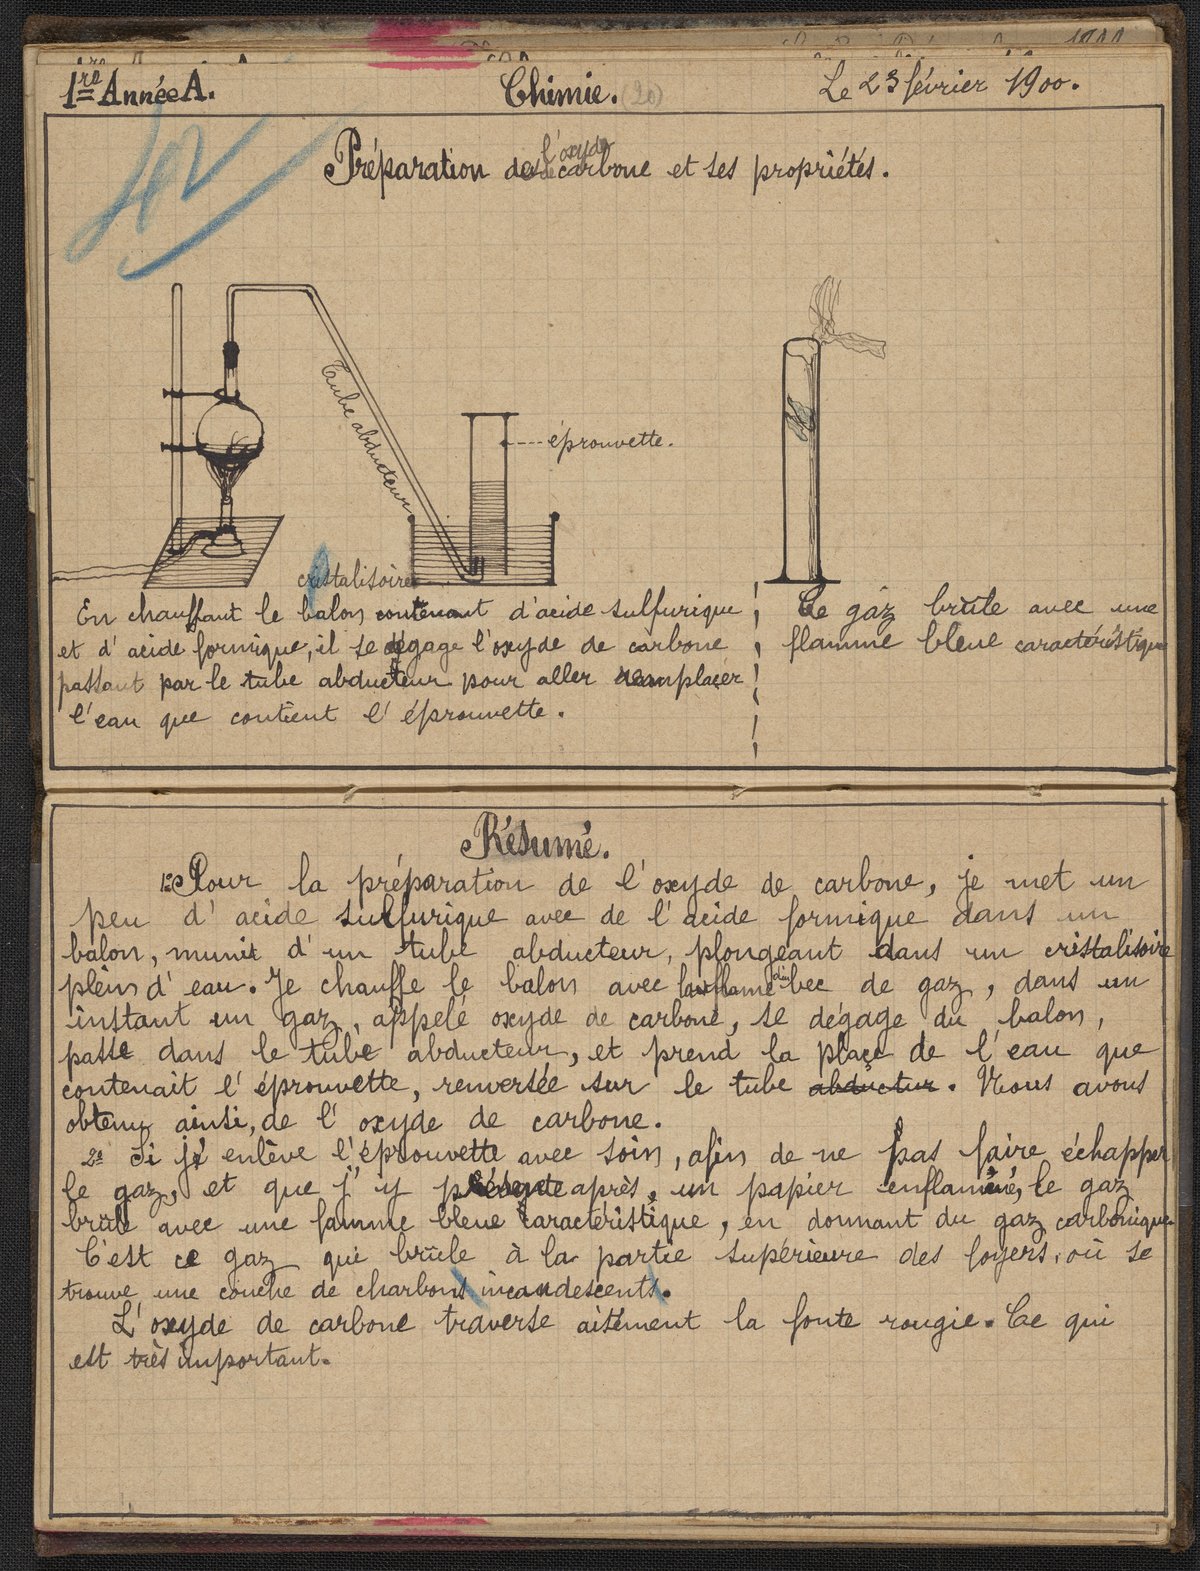 1re Année A. Chimie. (20) Le 23 février 1900.
Préparation de l'oxyde de carbone et ses propriétés.
Tube abducteur
éprouvette.
cristalisoire
En chauffant le balon contenant d'acide sulfurique
et d'acide formique, il se dégage l'oxyde de carbone
passant par le tube abducteur pour aller remplacer
l'eau que contient l'éprouvette.
Ce gaz brûle avec une
flamme bleue caractéristique
Résumé.
1º Pour la préparation de l'oxyde de carbone, je met un
peu d'acide sulfurique avec de l'acide formique dans un
balon, munit d'un tube abducteur, plongeant dans un cristalisoire
plein d'eau. Je chauffe le balon avec la flame du bec de gaz, dans un
instant un gaz, appelé oxyde de carbone, se dégage du balon,
passe dans le tube abducteur, et prend la place de l'eau que
contenait l'éprouvette, renversée sur le tube abductur. Nous avons
obtenu ainsi, de l'oxyde de carbone.
2º Si je enlève l'éprouvette avec soin, afin de ne pas faire échapper
le gaz, et que j'y présente après, un papier enflammé, le gaz
brûle avec une famme bleue caractéristique, en donnant du gaz carbonique
C'est ce gaz qui brûle à la partie supérieure des foyers, où se
trouve une couche de charbons incandescents.
L'oxyde de carbone traverse aisément la fonte rougie. Ce qui
est très important.